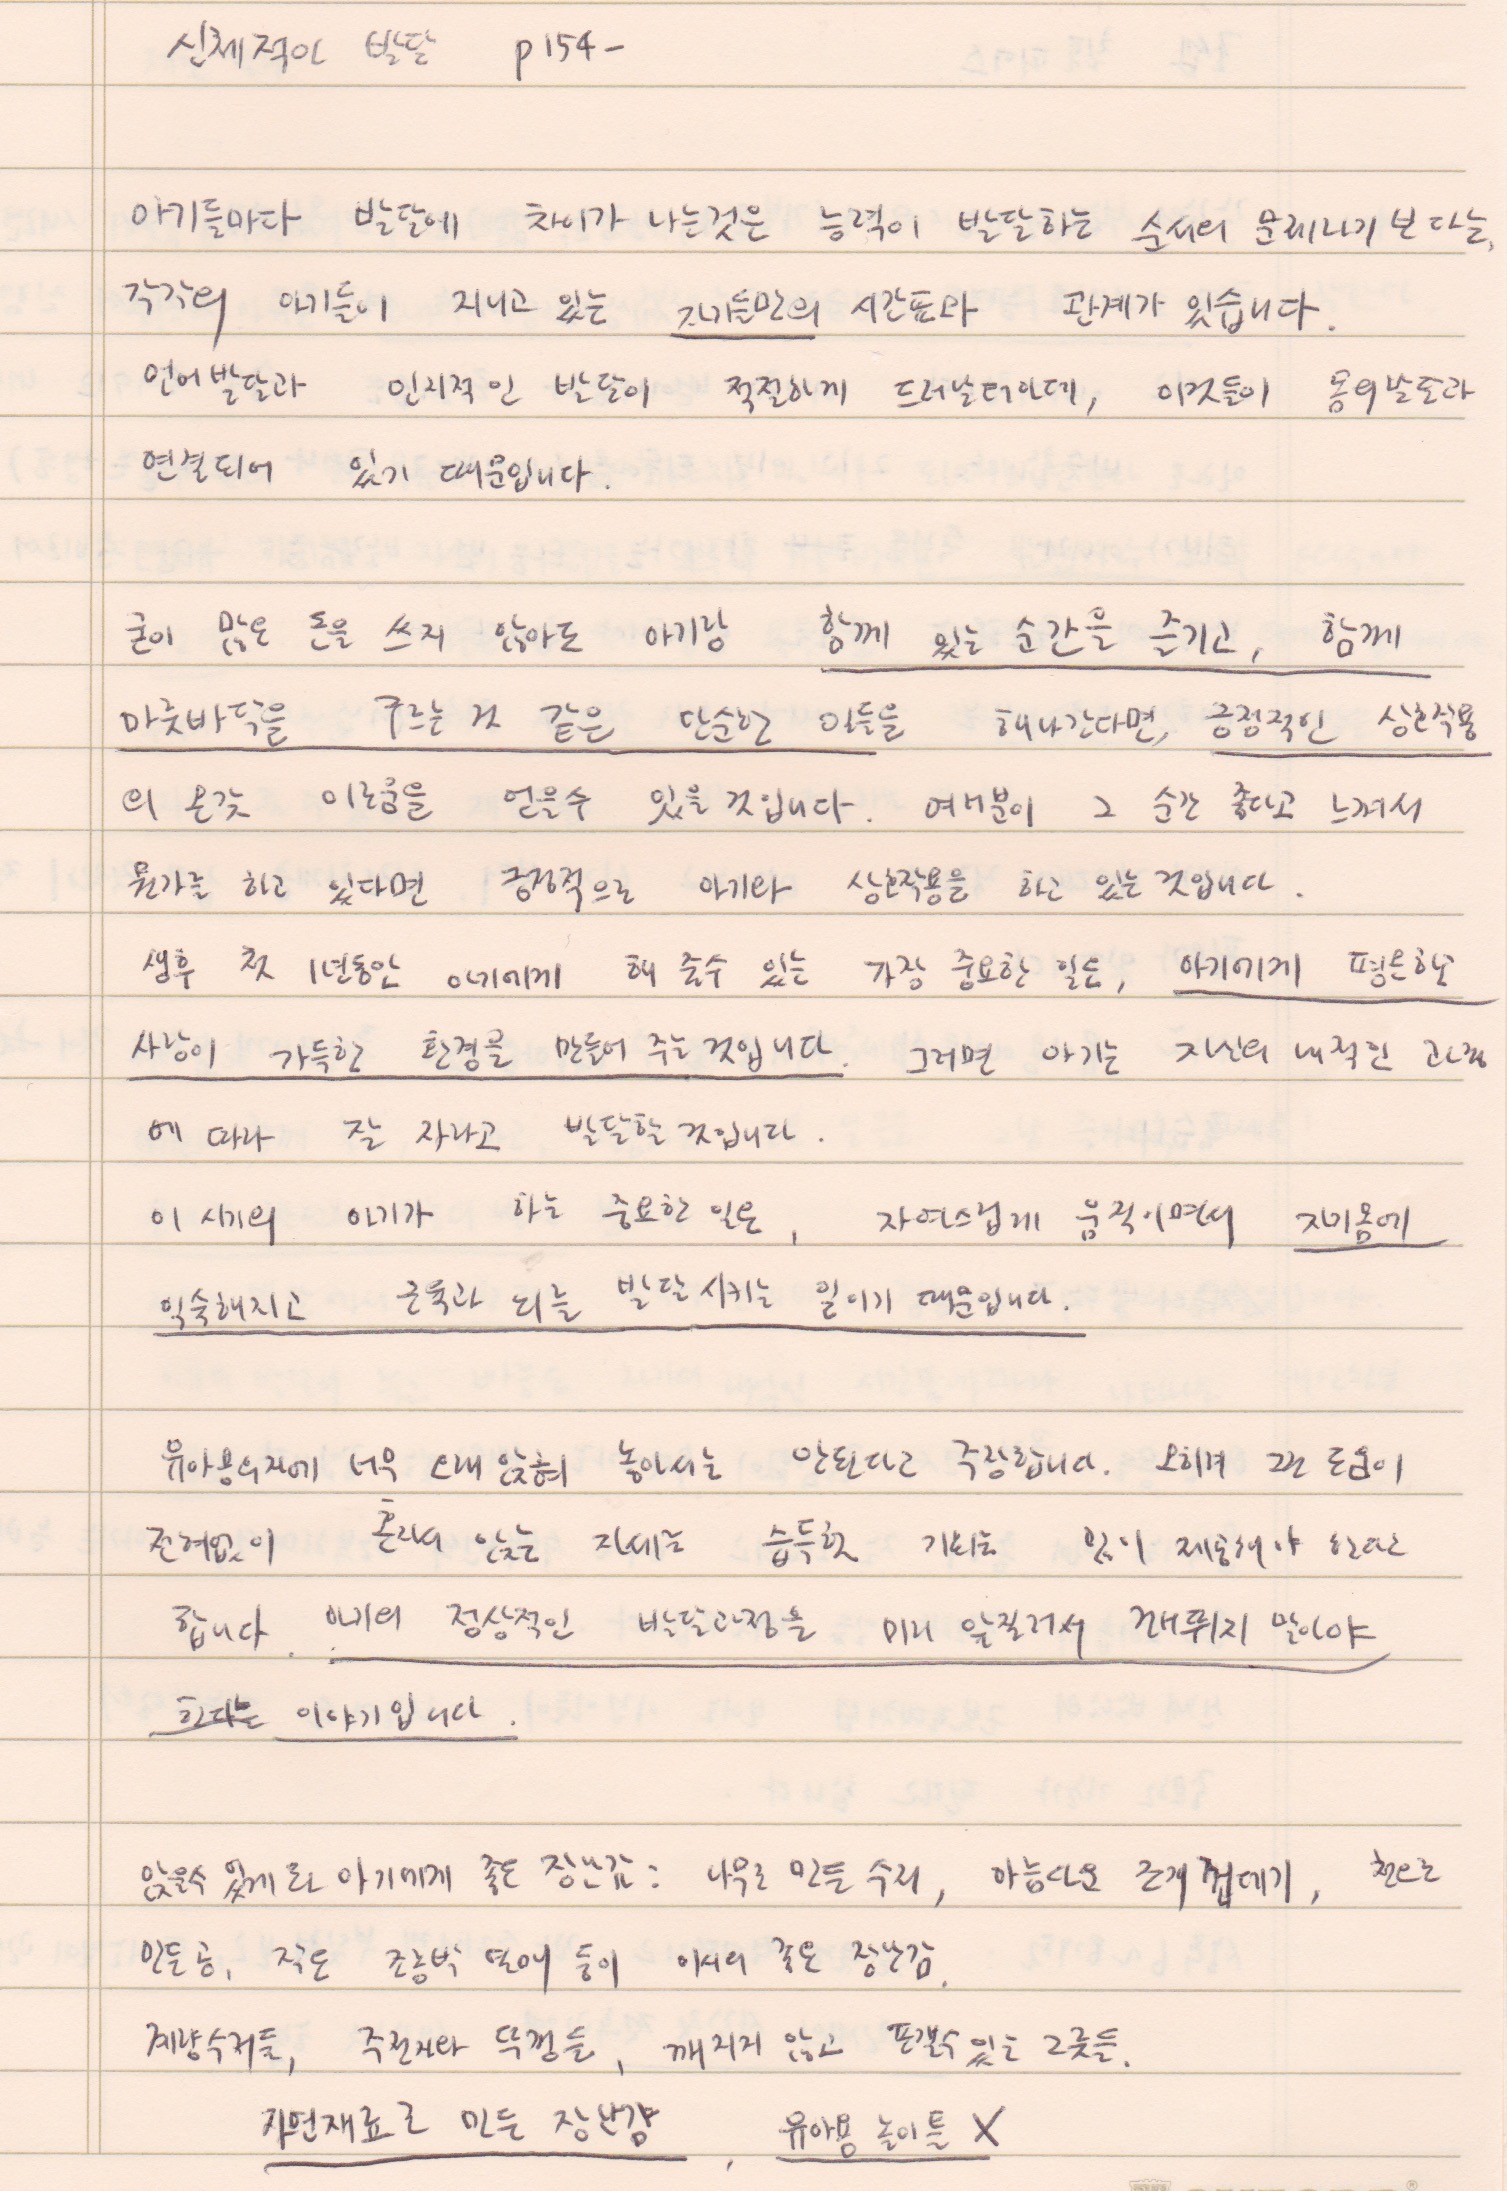 신체적인 발달 p154-
아기들마다 발달에 차이가 나는것은 능력이 발달하는 순서의 문제라기 보다는,
각각의 아기들이 지니고 있는 자기들만의 시간표와 관계가 있습니다.
언어발달과 인지적인 발달이 적절하게 드러날터인데, 이것들이 몸의발달과
연결되어 있기 때문입니다.
굳이 많은 돈을 쓰지 않아도 아기랑 함께 있는 순간을 즐기고, 함께
마룻바닥을 구르는 것 같은 단순한 일들을 해나간다면, 긍정적인 상호작용
의 온갖 이로움을 얻을수 있을것입니다. 여러분이 그 순간 좋다고 느껴서
뭔가를 하고 있다면 긍정적으로 아기와 상호작용을 하고 있는것입니다.
생후 첫 1년동안 아기에게 해 줄수 있는 가장 중요한 일은, 아기에게 평온하고
사랑이 가득한 환경을 만들어 주는것입니다. 그러면 아기는 자신의 내적인 과정
에 따라 잘 자라고 발달할것입니다.
이 시기의 아기가 하는 중요한 일은, 자연스럽게 움직이면서 자기몸에
익숙해지고 근육과 뇌를 발달시키는 일이기 때문입니다.
유아용의자에 너무 오래 앉혀 놓아서는 안된다고 주장합니다. 오히려 도움이
전혀없이 혼자서 앉는 자세를 습득할 기회를 많이 제공해야 한다고
합니다. 아기의 정상적인 발달과정을 미리 앞질러서 건너뛰지 말아야
한다는 이야기입니다.
앉을수 있게 된 아기에게 좋은 장난감: 나무로 만든 수저, 아름다운 조개껍데기, 천으로
만든 공, 작은 조롱박 열매 등이 아시의 좋은 장난감.
계량수저들, 주전자와 뚜껑들, 깨지지 않고 포갤수있는 그릇들.
자연재료로 만든 장난감, 유아용 놀이틀 X